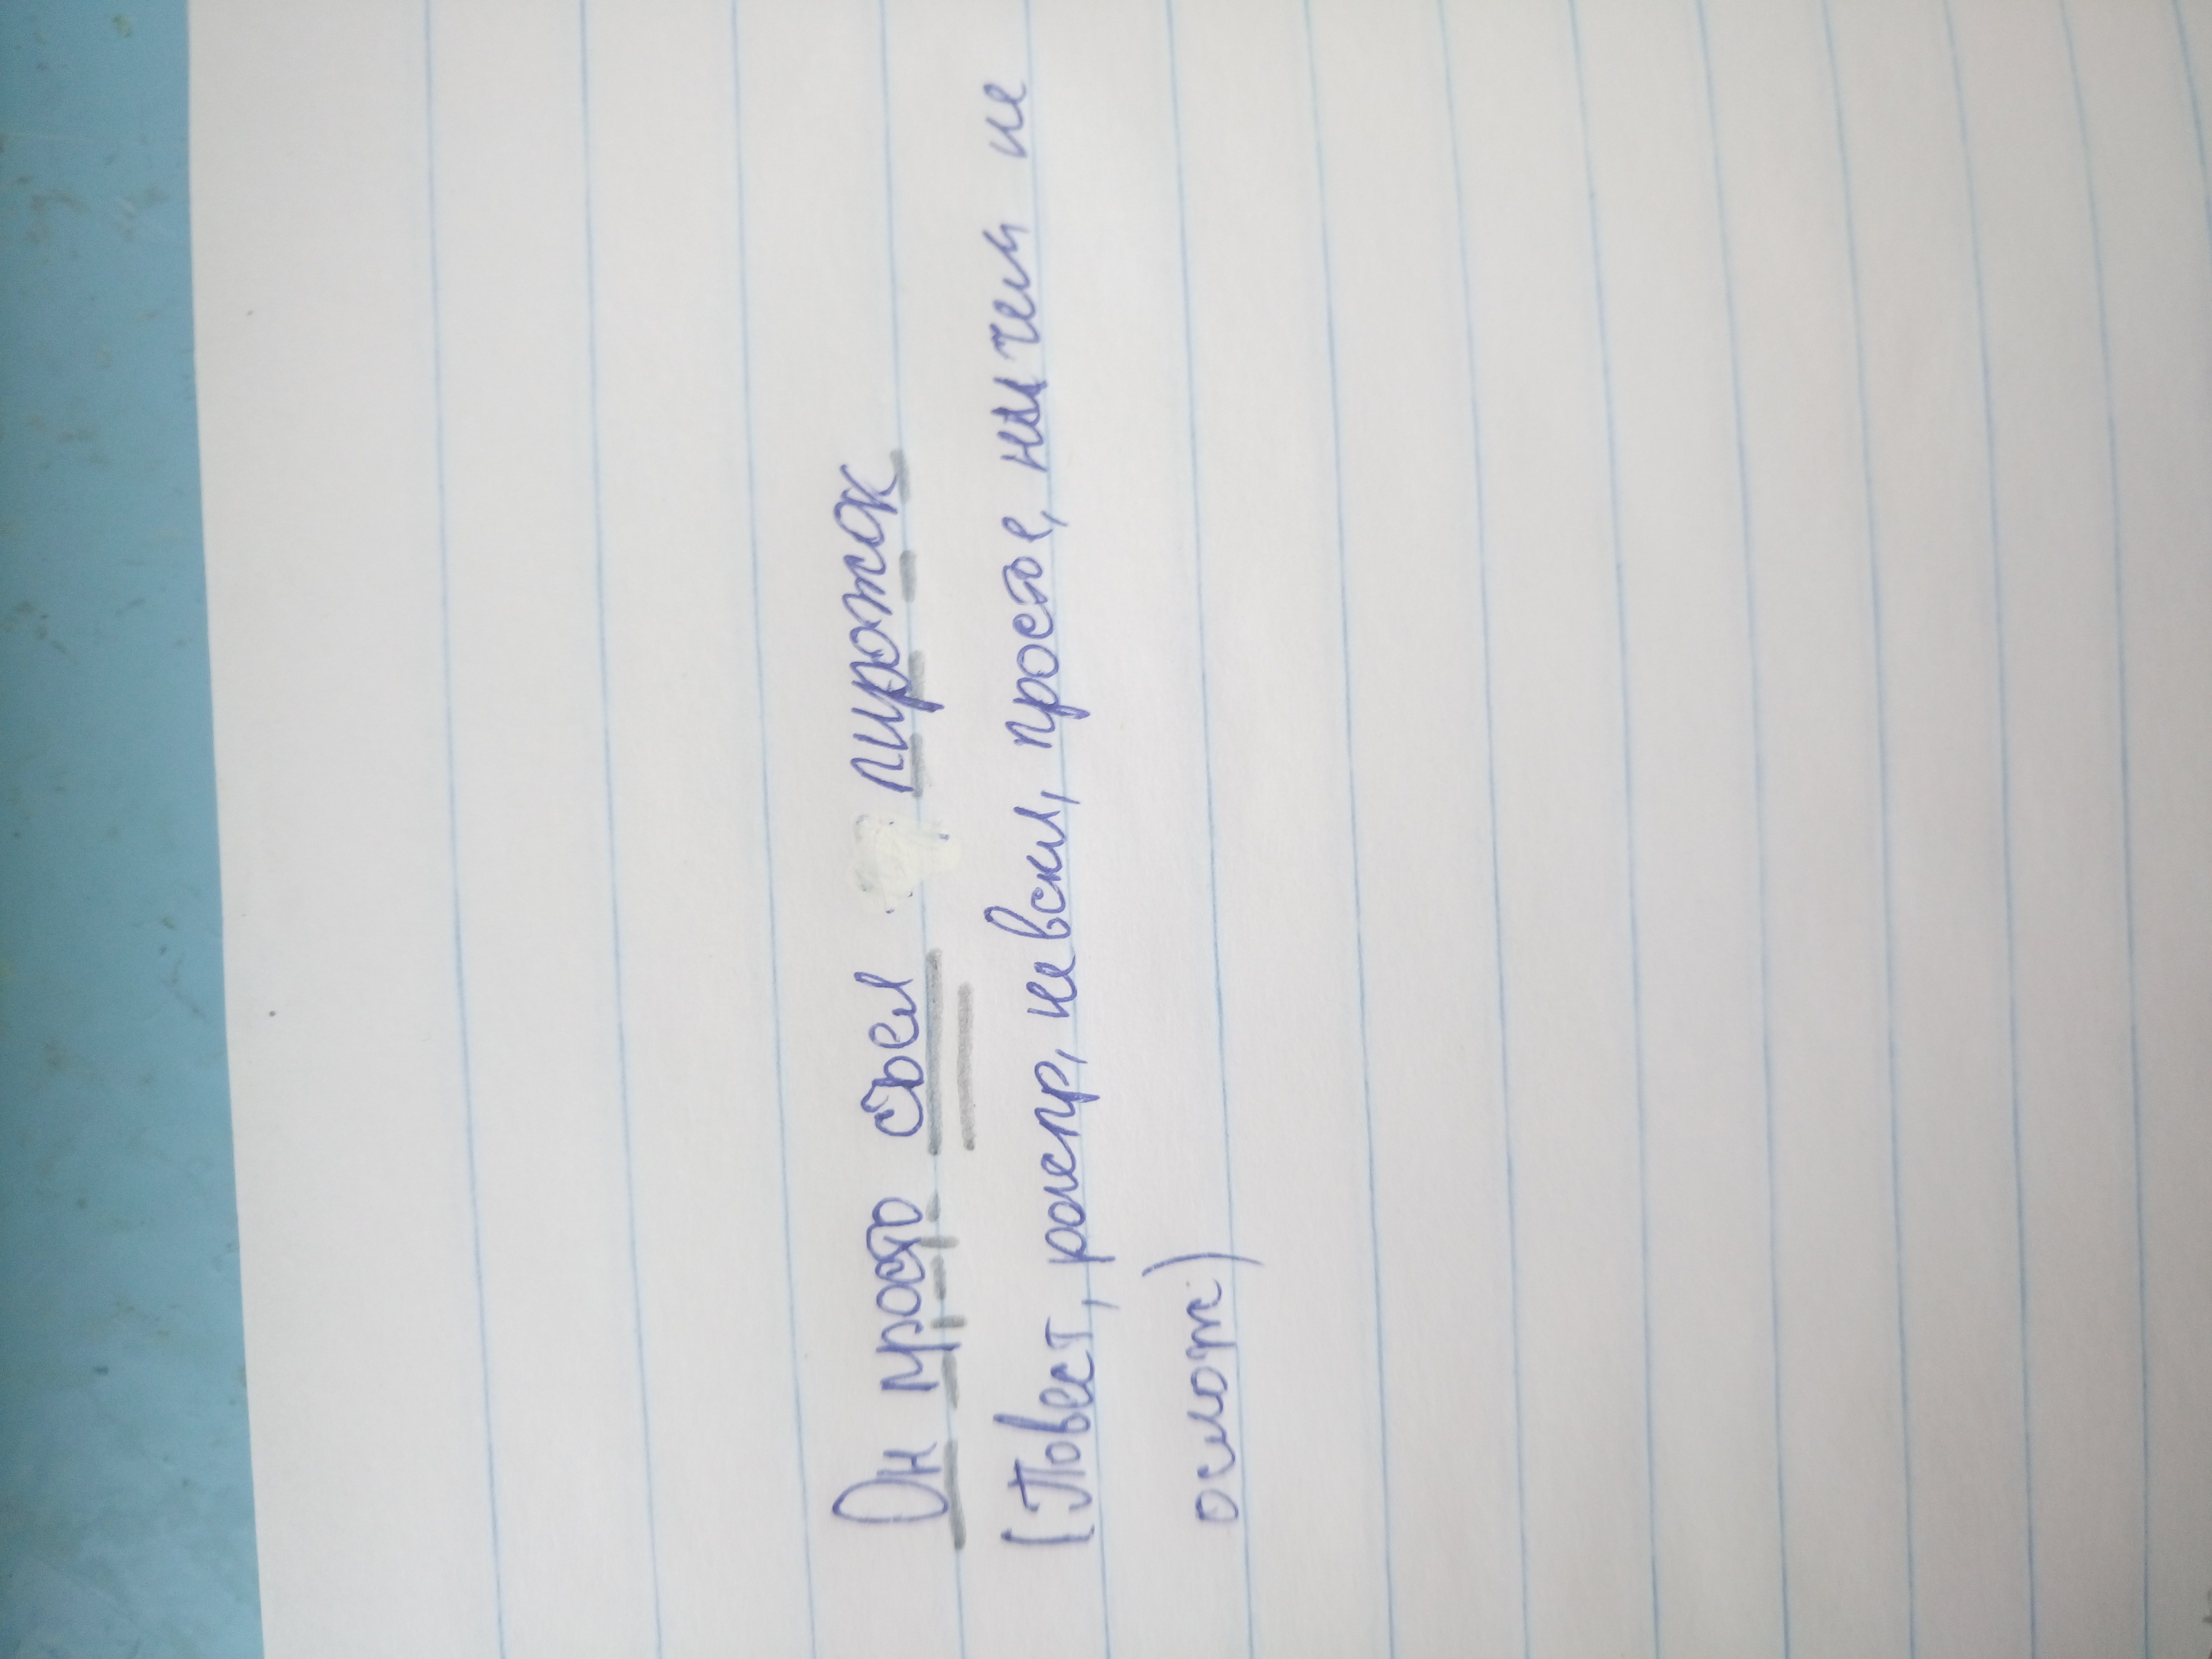 Он просто съел пирожок
(Повест, распр, невскл, простое, ничем не
ослож)